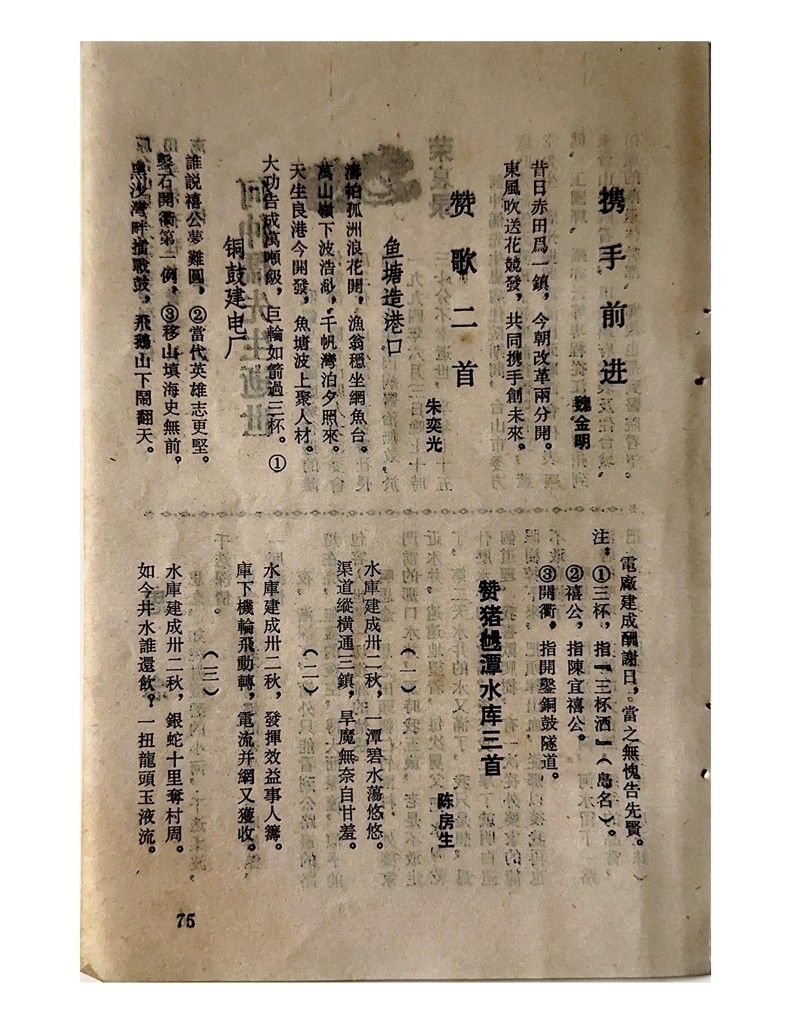 携手前进
魏金明
昔日赤田爲一鎮，今朝改革兩分開。
東風吹送花競發，共同携手創未來。
赞歌二首
朱奕光
鱼塘造港口
濤拍孤洲浪花開，漁翁穩坐網魚台。
萬山嶺下波浩渺，千帆灣泊夕照來。
天生良港今開發，魚塘波上聚人材。
大功告成萬噸級，巨輪如箭過三杯。①
铜鼓建电厂
誰説禧公夢難圓，②當代英雄志更堅。
鑿石開衢第一例，③移山填海史無前。
黑沙灣畔擂戰鼓，飛鵝山下鬧翻天。
電廠建成酬謝日，當之無愧告先賢。
注：①三杯，指『三杯酒』（島名）。
②禧公，指陳宜禧公。
③開衢，指開鑿銅鼓隧道。
赞猪乸潭水库三首
陈房生
（一）
水庫建成卅二秋，一潭碧水蕩悠悠。
渠道縱橫通三鎮，旱魔無奈自甘羞。
（二）
水庫建成卅二秋，發揮效益事人籌。
庫下機輪飛動轉，電流并網又獲收。
（三）
水庫建成卅二秋，銀蛇十里奪村周。
如今井水誰還飲？一扭龍頭玉液流。
75